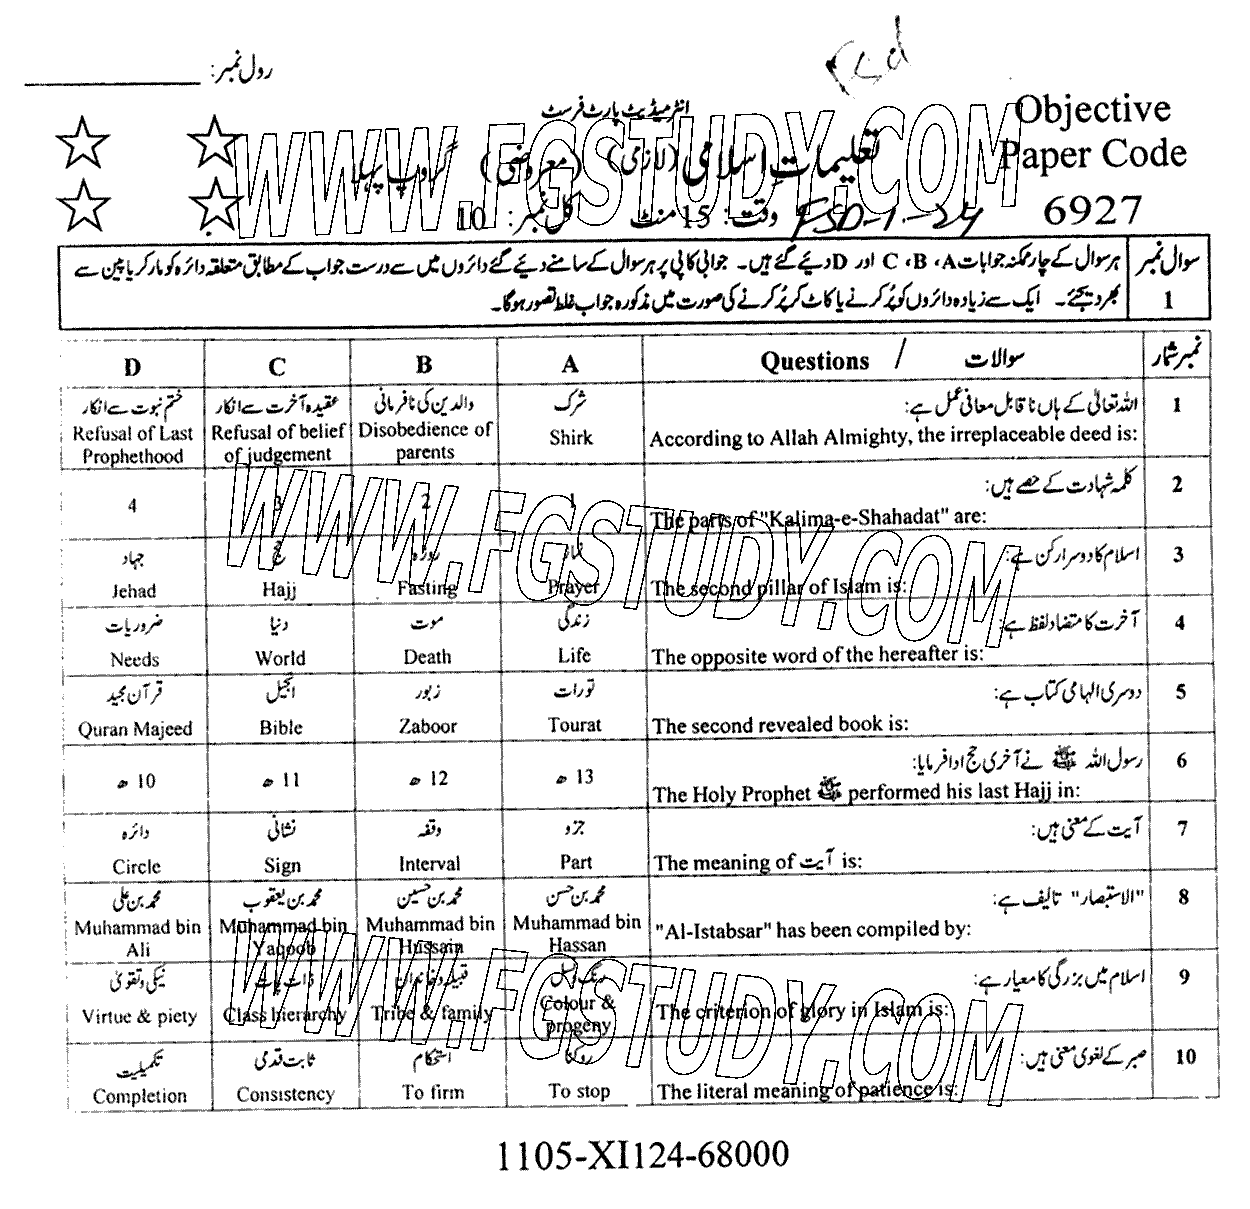 رول نمبر:
Fsd
انٹرمیڈیٹ پارٹ فرسٹ
Objective
Paper Code
6927
تعلیماتِ اسلامی (لازمی) (معروضی) گروپ پہلا
وقت: 15 منٹ کل نمبر: 10
FSD-1-24
WWW.FGSTUDY.COM
سوال نمبر 1
ہر سوال کے چار ممکنہ جوابات A ، B ، C اور D دیئے گئے ہیں۔ جوابی کاپی پر ہر سوال کے سامنے دیئے گئے دائروں میں سے درست جواب کے مطابق متعلقہ دائرہ کو مارکر یا پین سے
بھر دیجئے۔ ایک سے زیادہ دائروں کو پُر کرنے یا کاٹ کر پُر کرنے کی صورت میں مذکورہ جواب غلط تصور ہوگا۔
نمبر شمار سوالات / Questions A B C D
1 اللہ تعالیٰ کے ہاں ناقابل معافی عمل ہے: شرک والدین کی نافرمانی عقیدہ آخرت سے انکار ختم نبوت سے انکار
According to Allah Almighty, the irreplaceable deed is: Shirk Disobedience of parents Refusal of belief of judgement Refusal of Last Prophethood
2 کلمہ شہادت کے حصے ہیں:
The parts of "Kalima-e-Shahadat" are: 1 2 3 4
3 اسلام کا دوسرا رکن ہے: نماز روزہ حج جہاد
The second pillar of Islam is: Prayer Fasting Hajj Jehad
4 آخرت کا متضاد لفظ ہے: زندگی موت دنیا ضروریات
The opposite word of the hereafter is: Life Death World Needs
5 دوسری الہامی کتاب ہے: تورات زبور انجیل قرآن مجید
The second revealed book is: Tourat Zaboor Bible Quran Majeed
6 رسول اللہ ﷺ نے آخری حج ادا فرمایا:
The Holy Prophet ﷺ performed his last Hajj in: 13 ھ 12 ھ 11 ھ 10 ھ
7 آیت کے معنی ہیں: جزو وقفہ نشانی دائرہ
The meaning of آیت is: Part Interval Sign Circle
8 "الاستبصار" تالیف ہے: محمد بن حسن محمد بن حسین محمد بن یعقوب محمد بن علی
"Al-Istabsar" has been compiled by: Muhammad bin Hassan Muhammad bin Hussain Muhammad bin Yaqoob Muhammad bin Ali
9 اسلام میں بزرگی کا معیار ہے: رنگ و نسل قبیلہ و خاندان ذات پات نیکی و تقویٰ
The criterion of glory in Islam is: Colour & progeny Tribe & family Class hierarchy Virtue & piety
10 صبر کے لغوی معنی ہیں: روکنا استحکام ثابت قدمی تکمیلیت
The literal meaning of patience is: To stop To firm Consistency Completion
WWW.FGSTUDY.COM
WWW.FGSTUDY.COM
1105-XI124-68000